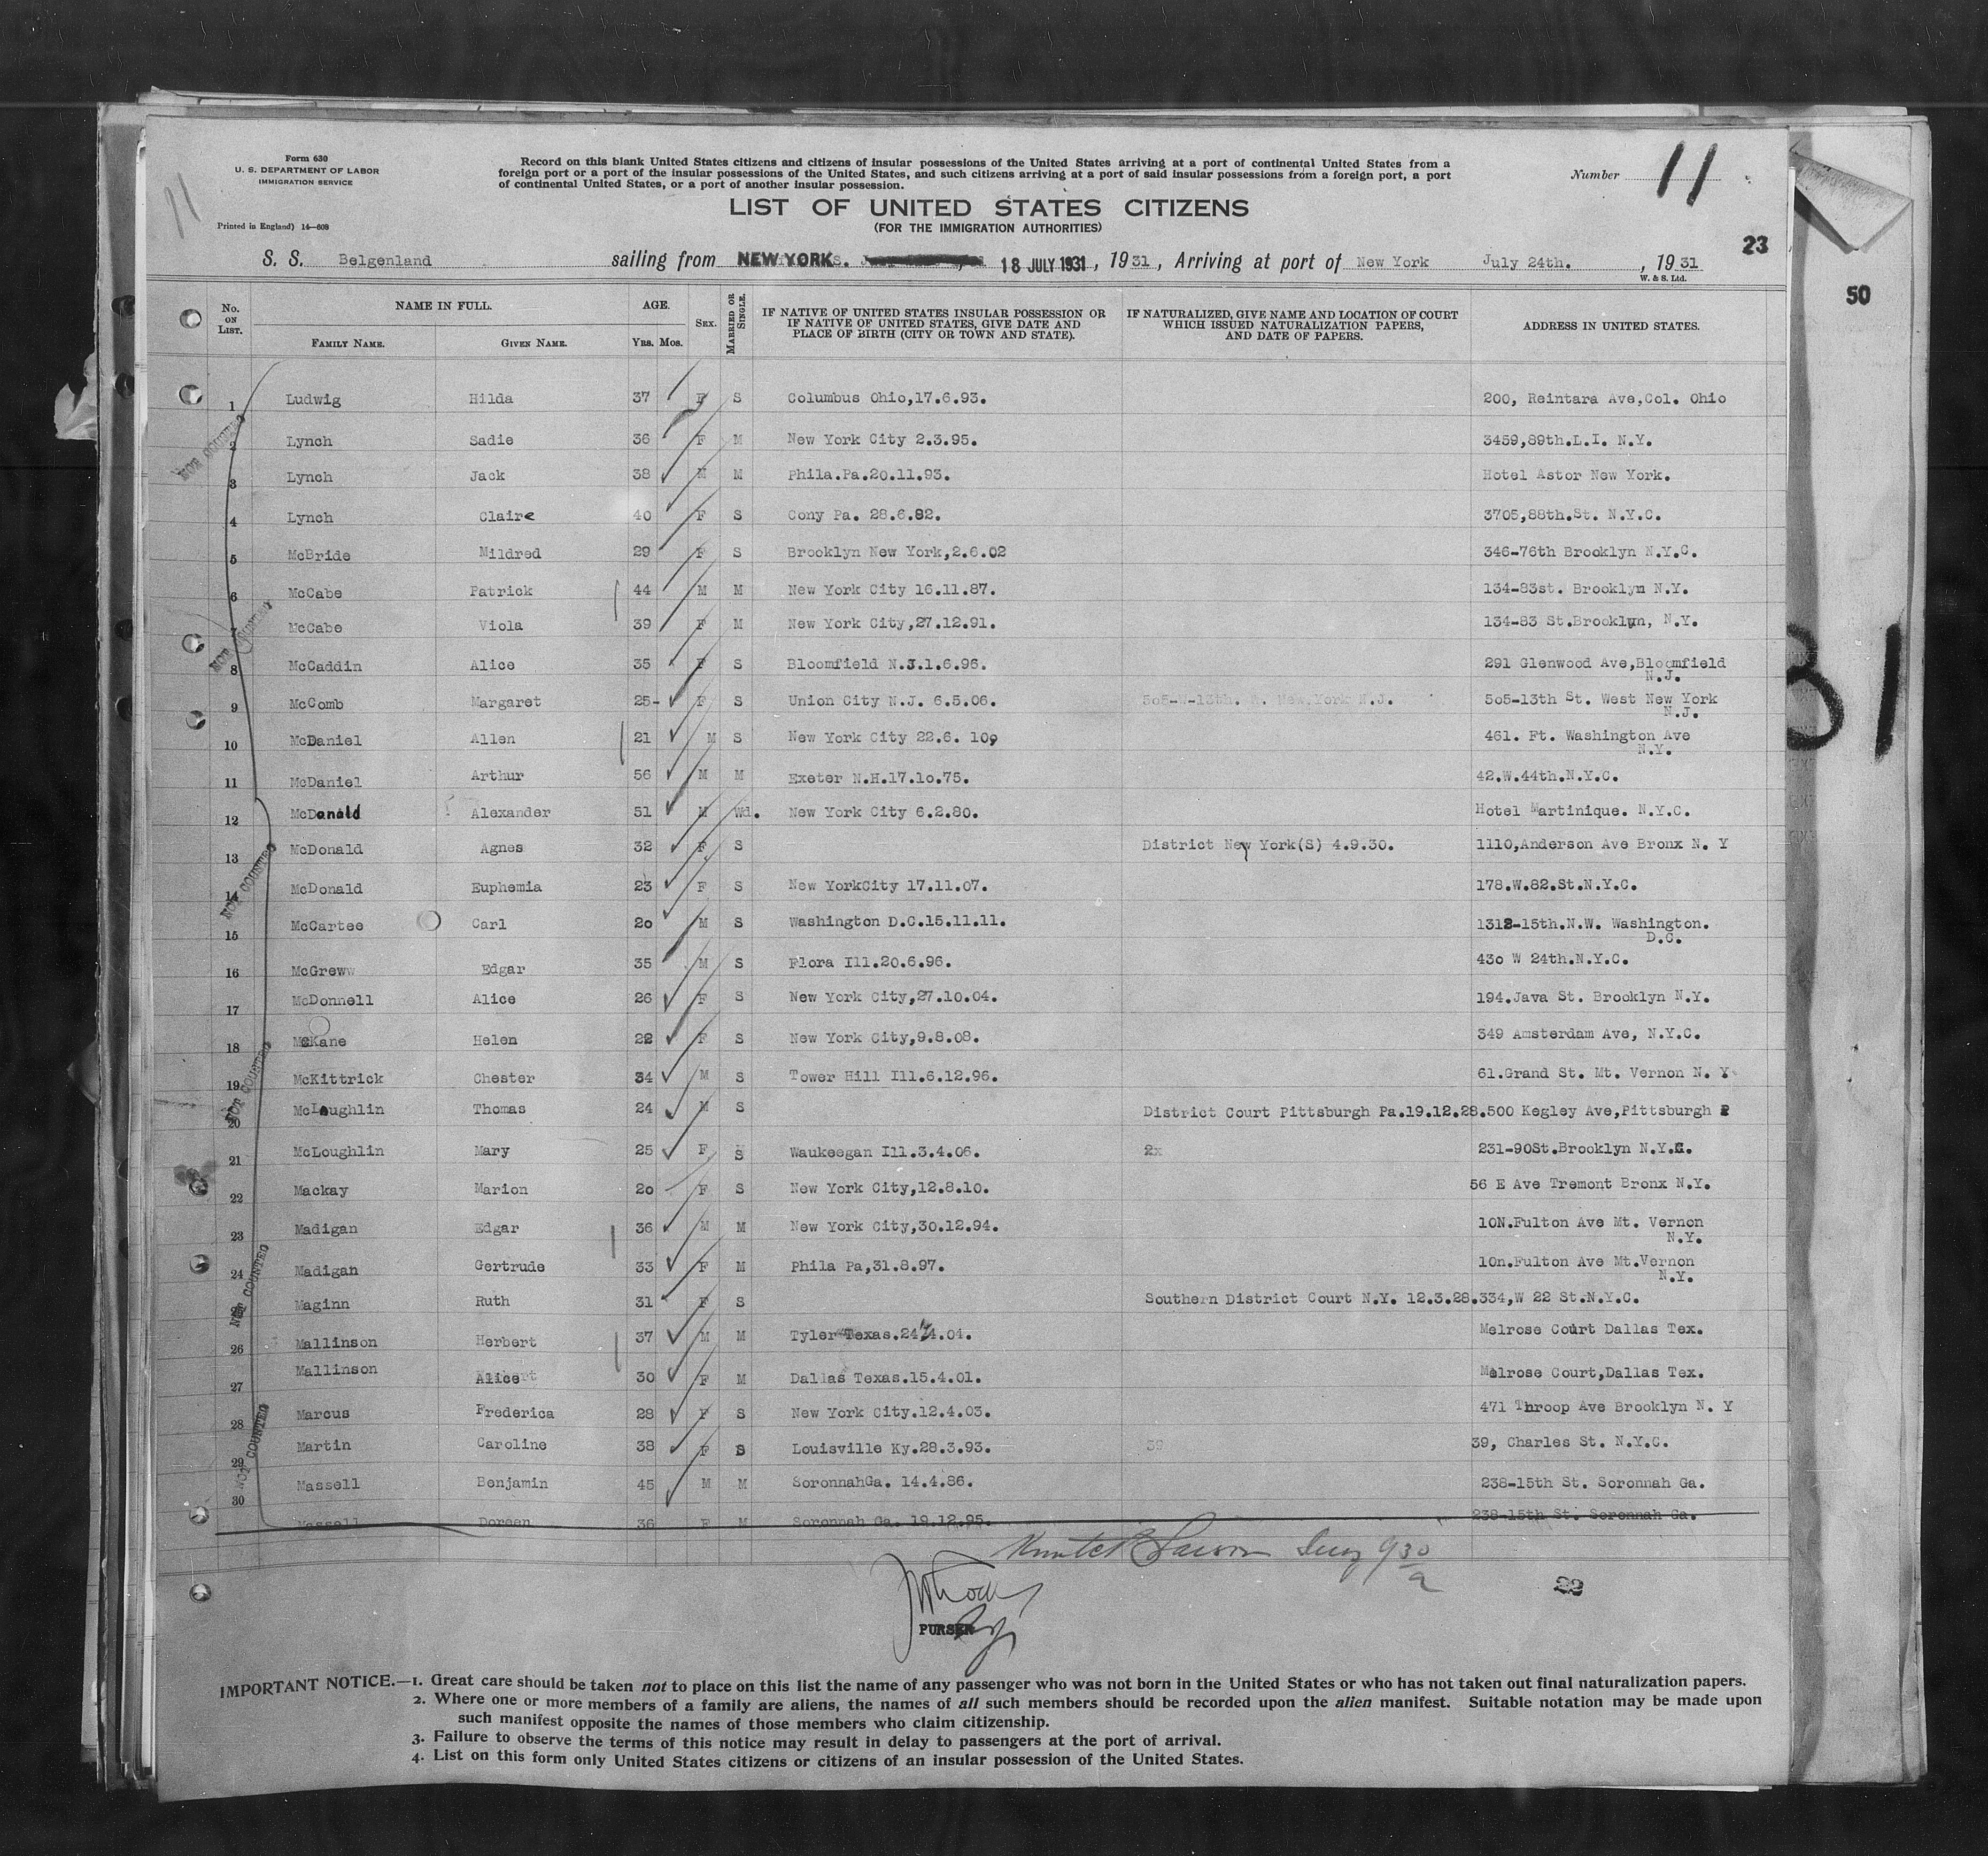 11
Form 630
U. S. DEPARTMENT OF LABOR
IMMIGRATION SERVICE
Printed in England) 14—608
Record on this blank United States citizens and citizens of insular possessions of the United States arriving at a port of continental United States from a
foreign port or a port of the insular possessions of the United States, and such citizens arriving at a port of said insular possessions from a foreign port, a port
of continental United States, or a port of another insular possession.
Number 11
LIST OF UNITED STATES CITIZENS
(FOR THE IMMIGRATION AUTHORITIES)
23
S. S. Belgenland sailing from NEW YORK. 18 JULY 1931, 1931, Arriving at port of New York July 24th. , 1931
W. & S. Ltd.
50
No. ON LIST. NAME IN FULL. FAMILY NAME. GIVEN NAME. AGE. YRS. MOS. SEX. MARRIED OR SINGLE. IF NATIVE OF UNITED STATES INSULAR POSSESSION OR IF NATIVE OF UNITED STATES, GIVE DATE AND PLACE OF BIRTH (CITY OR TOWN AND STATE). IF NATURALIZED, GIVE NAME AND LOCATION OF COURT WHICH ISSUED NATURALIZATION PAPERS, AND DATE OF PAPERS. ADDRESS IN UNITED STATES.
1 Ludwig Hilda 37 F S Columbus Ohio,17.6.93. 200, Reintara Ave,Col. Ohio
2 Lynch Sadie 36 F M New York City 2.3.95. 3459,89th.L.I. N.Y.
3 Lynch Jack 38 M M Phila.Pa.20.11.93. Hotel Astor New York.
4 Lynch Claire 40 F S Cony Pa. 28.6.82. 3705,88th.St. N.Y.C.
5 McBride Mildred 29 F S Brooklyn New York,2.6.02 346-76th Brooklyn N.Y.C.
6 McCabe Patrick 44 M M New York City 16.11.87. 134-83st. Brooklyn N.Y.
7 McCabe Viola 39 F M New York City,27.12.91. 134-83 St.Brooklyn, N.Y.
8 McCaddin Alice 35 F S Bloomfield N.J.1.6.96. 291 Glenwood Ave,Bloomfield
N.J.
9 McComb Margaret 25- F S Union City N.J. 6.5.06. 505-W-13th. New York N.J. 505-13th St. West New York
N.J.
10 McDaniel Allen 21 M S New York City 22.6. 109 461. Ft. Washington Ave
N.Y.
11 McDaniel Arthur 56 M M Exeter N.H.17.10.75. 42.W.44th.N.Y.C.
12 McDonald Alexander 51 M Wd. New York City 6.2.80. Hotel Martinique. N.Y.C.
13 McDonald Agnes 32 F S District New York(S) 4.9.30. 1110,Anderson Ave Bronx N. Y
14 McDonald Euphemia 23 F S New YorkCity 17.11.07. 178.W.82.St.N.Y.C.
15 McCartee Carl 20 M S Washington D.C.15.11.11. 1312-15th.N.W. Washington.
D.C.
16 McGreww Edgar 35 M S Flora Ill.20.6.96. 430 W 24th.N.Y.C.
17 McDonnell Alice 26 F S New York City,27.10.04. 194.Java St. Brooklyn N.Y.
18 McKane Helen 22 F S New York City,9.8.08. 349 Amsterdam Ave, N.Y.C.
19 McKittrick Chester 34 M S Tower Hill Ill.6.12.96. 61.Grand St. Mt. Vernon N. Y
20 McLoughlin Thomas 24 M S District Court Pittsburgh Pa.19.12.28.500 Kegley Ave,Pittsburgh P
21 McLoughlin Mary 25 F S Waukeegan Ill.3.4.06. 2x 231-90St.Brooklyn N.Y.C.
22 Mackay Marion 20 F S New York City,12.8.10. 56 E Ave Tremont Bronx N.Y.
23 Madigan Edgar 36 M M New York City,30.12.94. 10N.Fulton Ave Mt. Vernon
N.Y.
24 Madigan Gertrude 33 F M Phila Pa,31.8.97. 10n.Fulton Ave Mt.Vernon
N.Y.
25 Maginn Ruth 31 F S Southern District Court N.Y. 12.3.28.334,W 22 St.N.Y.C.
26 Mallinson Herbert 37 M M Tyler Texas.24.4.04. Melrose Court Dallas Tex.
27 Mallinson Alice 30 F M Dallas Texas.15.4.01. Melrose Court,Dallas Tex.
28 Marcus Frederica 28 F S New York City.12.4.03. 471 Throop Ave Brooklyn N. Y
29 Martin Caroline 38 F S Louisville Ky.28.3.93. 39 39, Charles St. N.Y.C.
30 Massell Benjamin 45 M M SoronnahGa. 14.4.86. 238-15th St. Soronnah Ga.
Massell Doreen 36 F M Soronnah Ga. 19.12.95. 238-15th St. Soronnah Ga.
NOT COUNTED
NOT COUNTED
NOT COUNTED
NOT COUNTED
NOT COUNTED
NOT COUNTED
PURSER
22
IMPORTANT NOTICE.—1. Great care should be taken not to place on this list the name of any passenger who was not born in the United States or who has not taken out final naturalization papers.
2. Where one or more members of a family are aliens, the names of all such members should be recorded upon the alien manifest. Suitable notation may be made upon
such manifest opposite the names of those members who claim citizenship.
3. Failure to observe the terms of this notice may result in delay to passengers at the port of arrival.
4. List on this form only United States citizens or citizens of an insular possession of the United States.